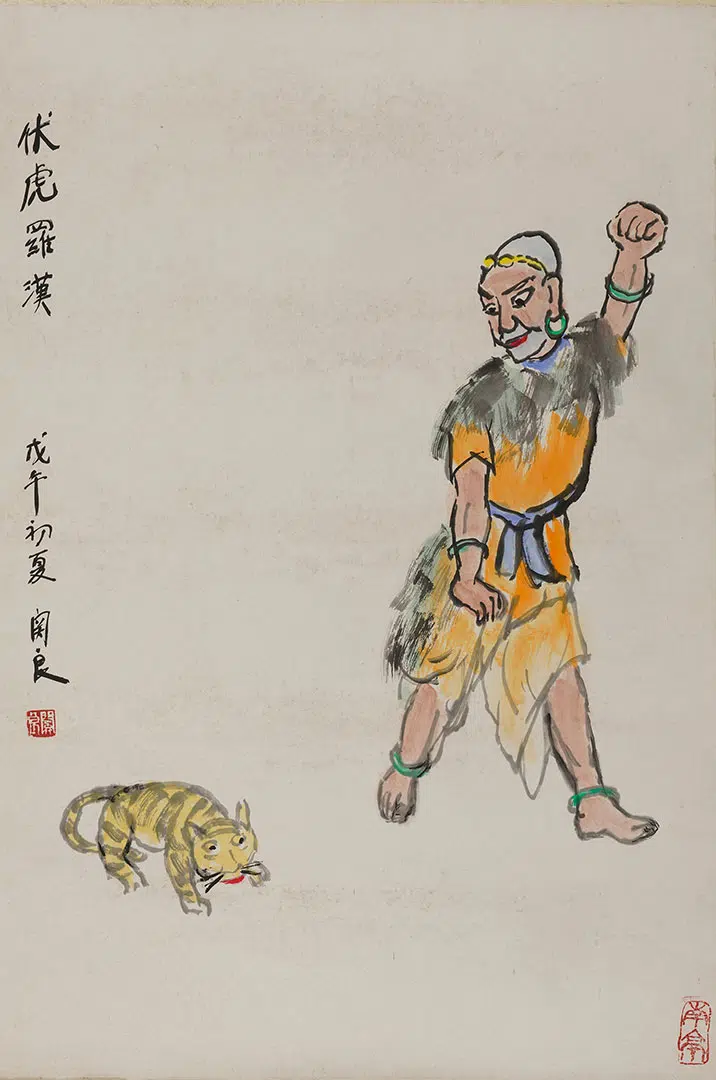 伏虎羅漢
戊午初夏 関良
關良